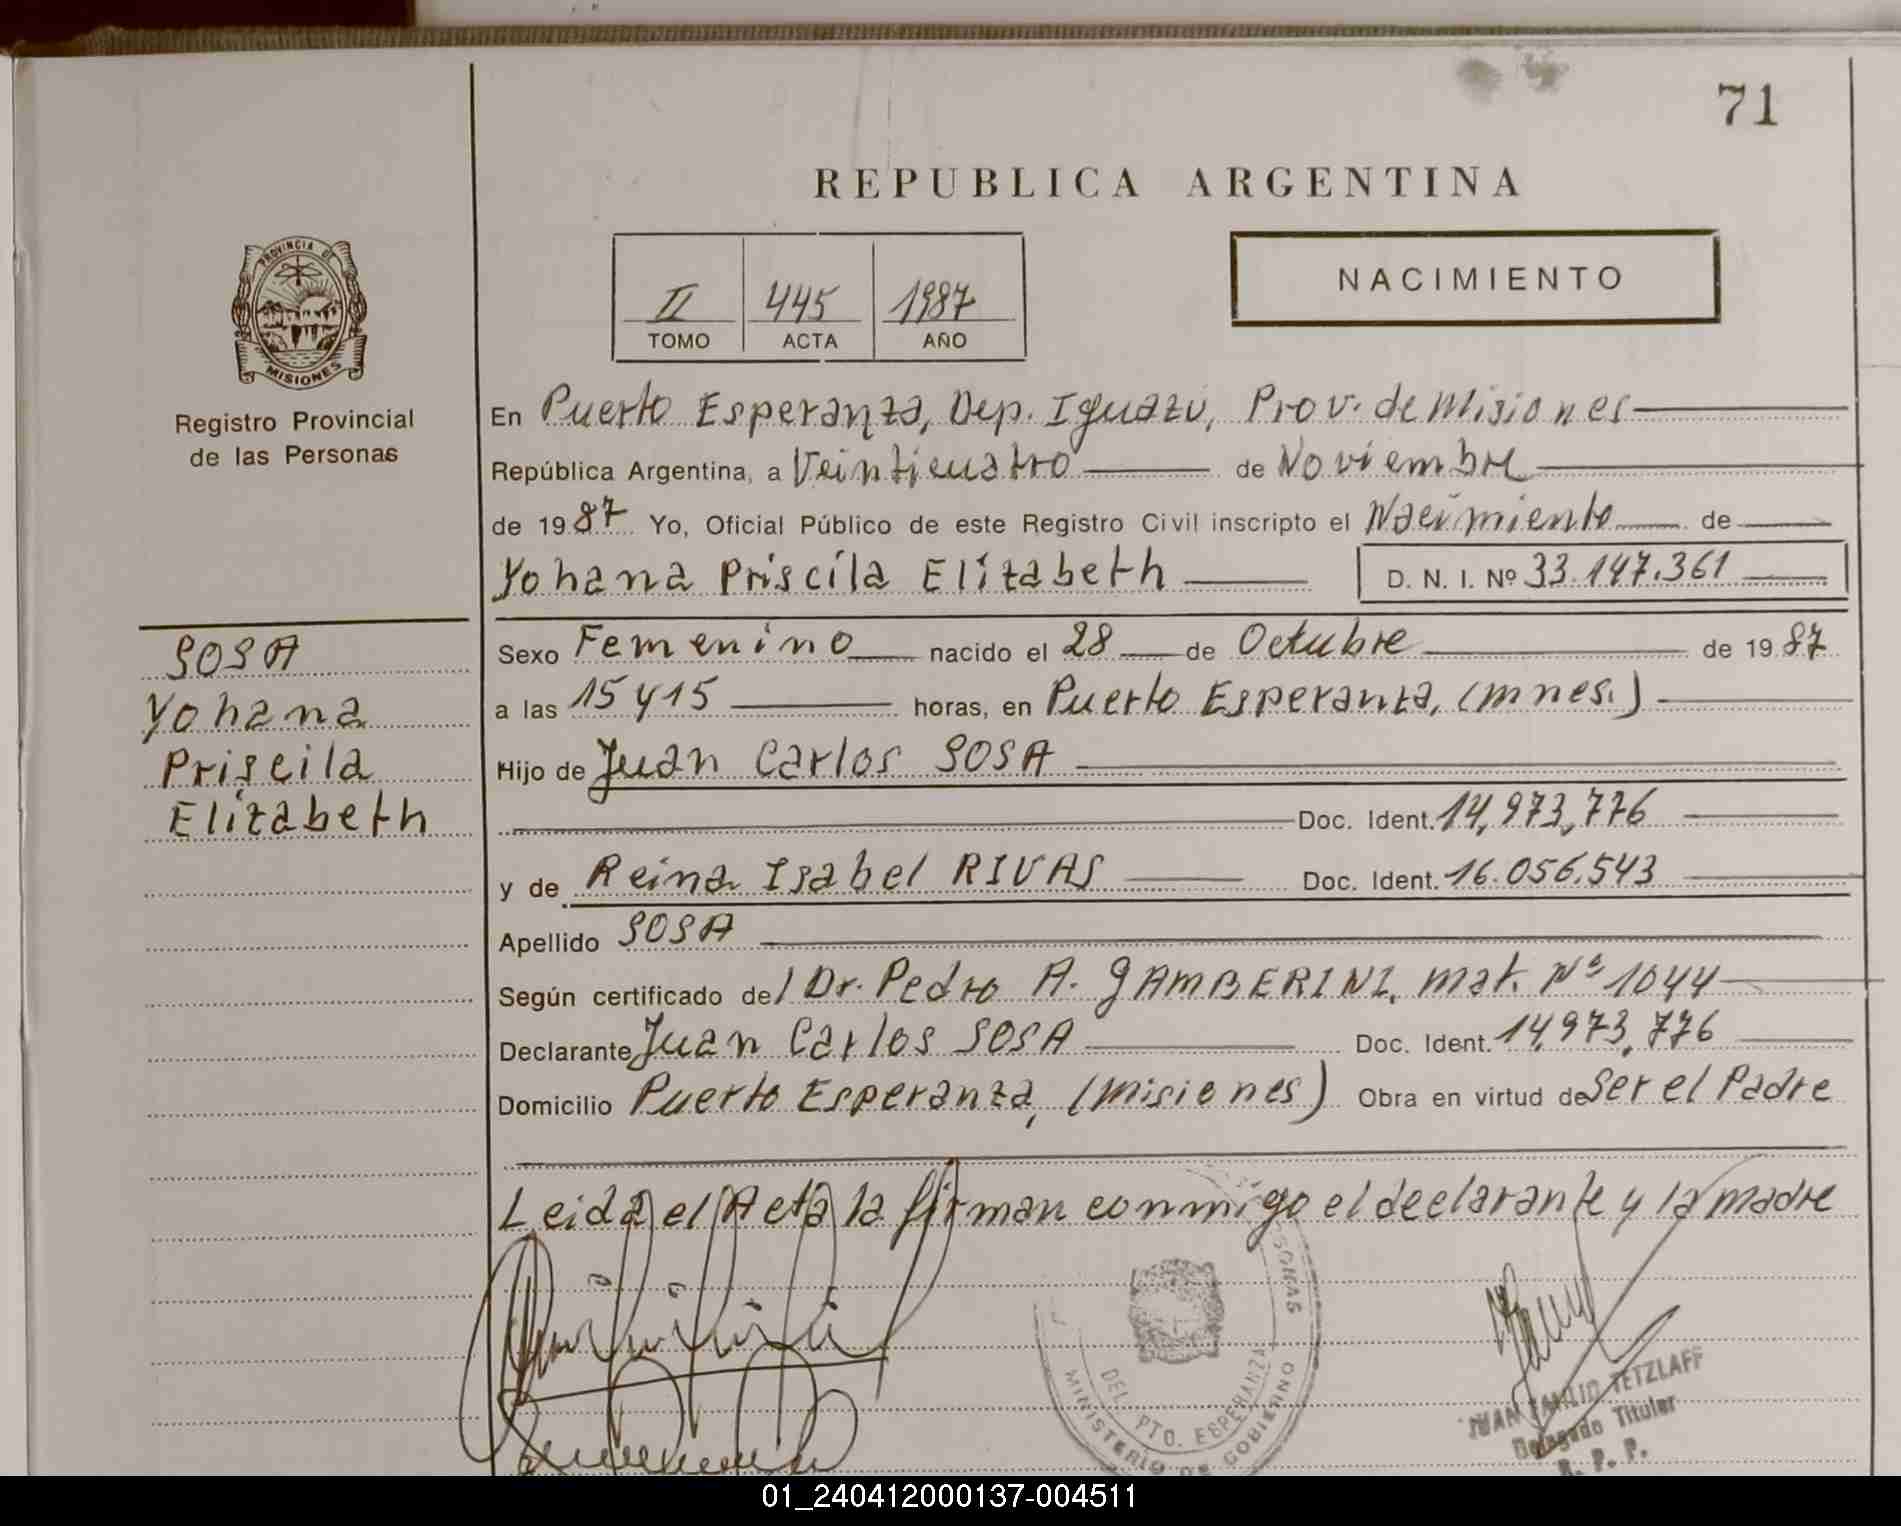 71
REPUBLICA ARGENTINA
PROVINCIA DE
MISIONES
Registro Provincial
de las Personas
II 445 1987
TOMO ACTA AÑO
NACIMIENTO
En Puerto Esperanza, Dep. Iguazú, Prov. de Misiones
República Argentina, a Veinticuatro de Noviembre
de 1987 Yo, Oficial Público de este Registro Civil inscripto el Nacimiento de
Yohana Priscila Elizabeth D. N. I. Nº 33.147.361
SOSA
Yohana
Priscila
Elizabeth
Sexo Femenino nacido el 28 de Octubre de 1987
a las 15 y 15 horas, en Puerto Esperanza, (mnes.)
Hijo de Juan Carlos SOSA
Doc. Ident. 14,973,776
y de Reina Isabel RIVAS Doc. Ident. 16.056.543
Apellido SOSA
Según certificado del Dr. Pedro A. GAMBERINI, mat. Nº 1044
Declarante Juan Carlos SOSA Doc. Ident. 14,973,776
Domicilio Puerto Esperanza, (Misiones) Obra en virtud de Ser el Padre
Leida el Acta la firman conmigo el declarante y la madre
DEL PTO. ESPERANZA
MINISTERIO DE GOBIERNO
JUAN EMILIO TETZLAFF
Delegado Titular
R. P. P.
01_240412000137-004511